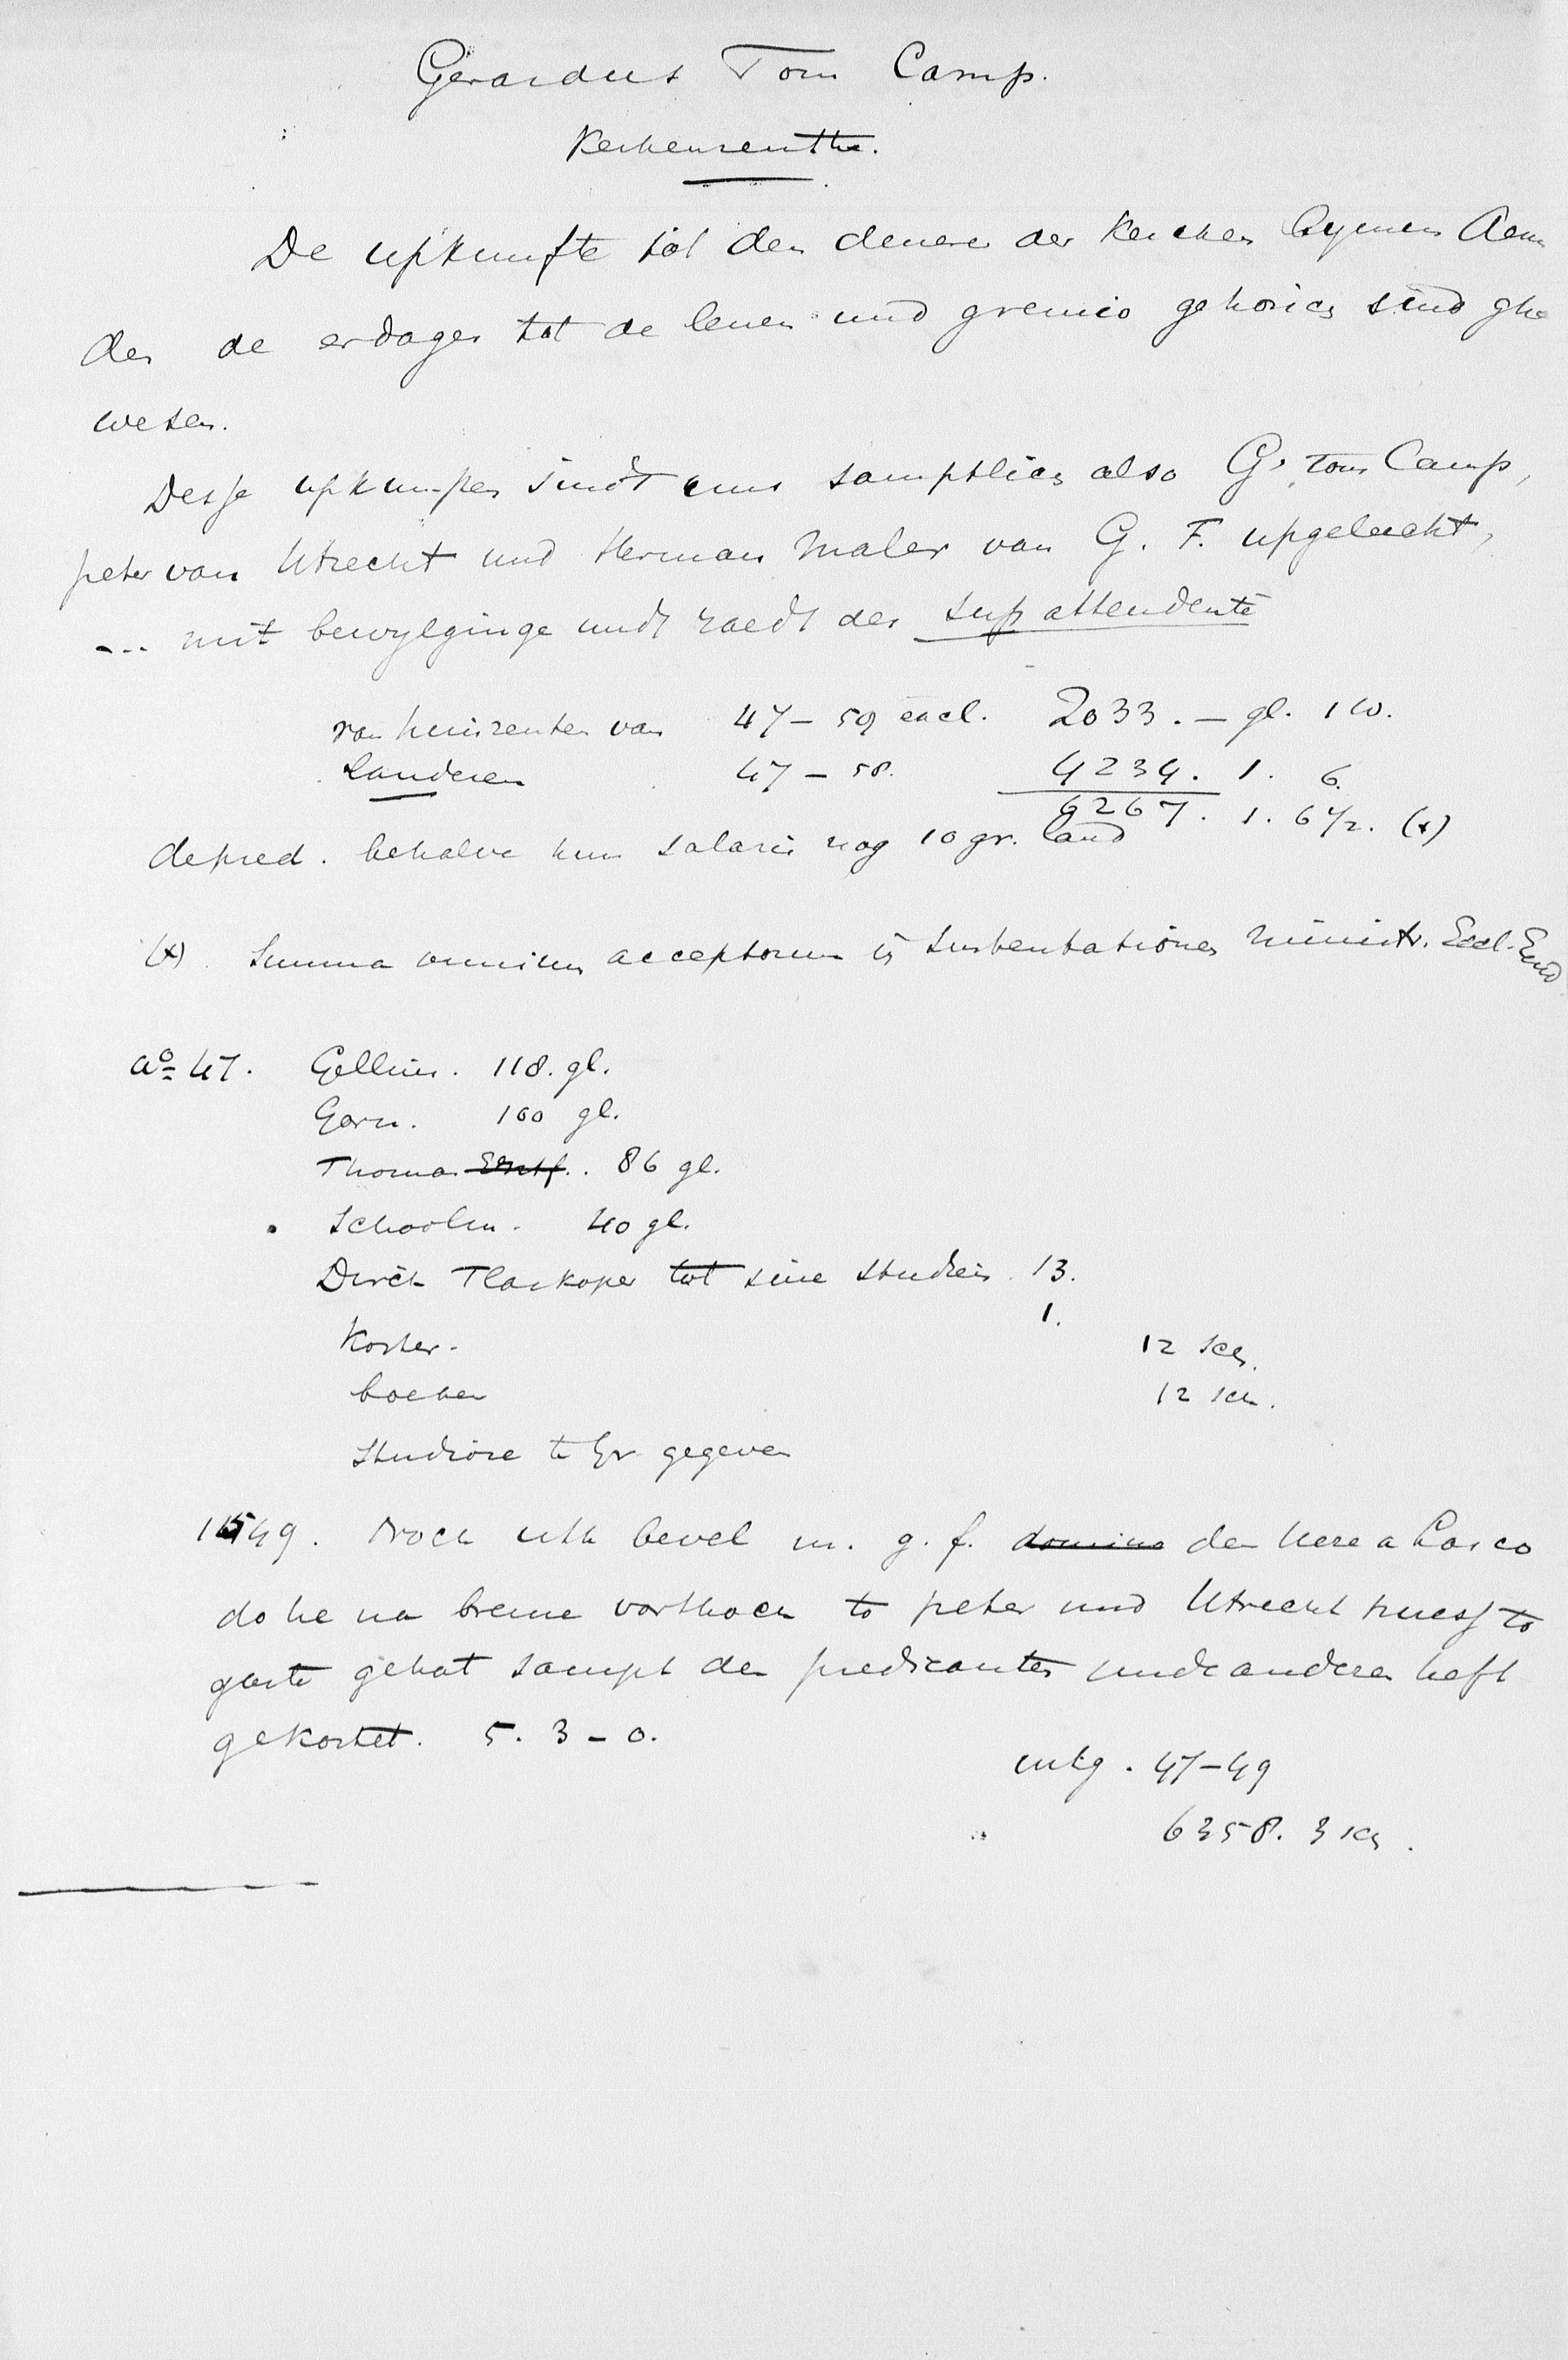 Gerardus Tom Camp.
Kerkenrenthe.
De upkumfte tot den denere der Kercken bynnen Aem
den de erdages tot de lenen und gremio gehorich sind ghe
wesen.
Desse upkumpsten sindt uns samptlich also G. tom Camp,
peter van Utrecht und Herman Maler van G. F. upgelecht,
... mit bewylginge undt raedt des sup attendente
van huisrenten van 47 - 59 excl. 2033. — gl. 1 w.
Landeren 47 - 58. 4234. 1. 6.
6267. 1. 6 1/2. (x)
de pred. behalve hun salaris nog 10 gr. land
(x) Summa omnium acceptorum in sustentationes ministr. Eccl. Emd
aº 47. Gellius. 118. gl.
Gorn. 100 gl.
Thoma . 86 gl.
Schoolm. 40 gl.
Dirck Flaskoper tot sine studien. 13.
1.
Koster. 12 sch.
boeken 12 sch.
Studiose te Gr. gegeven
1549. Noch uth bevel m. g. f. domino den here a Lasco
do he na breme vorthoch to peter und Utrecht huess to
gaste gehat sampt den predicanten unde anderen heft
gekostet. 5. 3 - 0.
uitg. 47-49
6358. 3 sch.